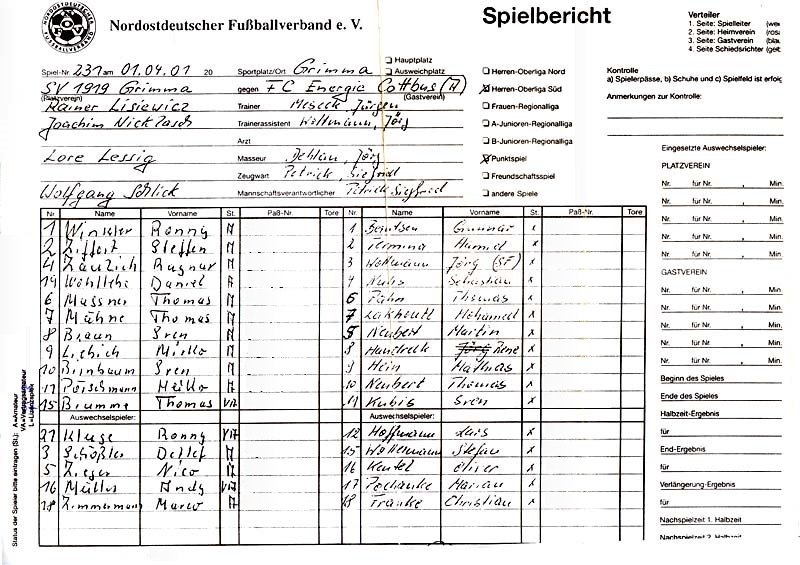 NORDOSTDEUTSCHER FUSSBALLVERBAND
NOFV
Nordostdeutscher Fußballverband e. V.
Spielbericht
Verteiler
1. Seite: Spielleiter
2. Seite: Heimverein
3. Seite: Gastverein
4. Seite Schiedsrichter
Spiel-Nr. 231 am 01.04.01 20
Sportplatz/Ort Grimma
Hauptplatz
Ausweichplatz
SV 1919 Grimma gegen FC Energie Cottbus (A)
(Platzverein) (Gastverein)
Rainer Lisiewicz Trainer Meseck, Jürgen
Joachim Nickłasch Trainerassistent Woltmann, Jörg
Arzt
Lore Lessig Masseur Dehlan, Jörg
Zeugwart Petrick, Siegfried
Wolfgang Schlick Mannschaftsverantwortlicher Petrick Siegfried
Herren-Oberliga Nord
Herren-Oberliga Süd
Frauen-Regionalliga
A-Junioren-Regionalliga
B-Junioren-Regionalliga
Punktspiel
Freundschaftsspiel
andere Spiele
Kontrolle
a) Spielerpässe, b) Schuhe und c) Spielfeld ist erfolg
Anmerkungen zur Kontrolle:
Nr Name Vorname St. Paß-Nr. Tore Nr. Name Vorname St. Paß-Nr. Tore
1 Winkler Ronny A 1 Berntsen Gunnar x
2 Ziffert Steffen A 2 Termina Hamid x
4 Räuzlich Ragnar A 3 Woltmann Jörg (SF) x
19 Daniel A 4 Kuhs Sebastian x
6 Massner Thomas A 6 Pahn Thomas x
7 Mühne Thomas A 7 Lakhouil Mohamed x
8 Braun Sven A 5 Neubert Martin x
9 Liebich Mirko A 8 Handreck Jörg Rene x
10 Birnbaum Sven A 9 Hein Mathias x
17 Pörschmann Heiko A 10 Neubert Thomas x
15 Brumme Thomas VA 11 Kubis Sven x
Auswechselspieler: Auswechselspieler:
21 Kluge Ronny VA 12 Hoffmann Lars x
3 Schößler Detlef A 15 Woltermann Stefan x
5 Zieger Nico A 16 Keutel Oliver x
16 Müller Andy VA 17 Pochanke Marian x
18 Zimmermann Marco A 18 Franke Christian x
Eingesetzte Auswechselspieler:
PLATZVEREIN
Nr. für Nr. , Min.
Nr. für Nr. , Min.
Nr. für Nr. , Min.
Nr. für Nr. , Min.
Nr. für Nr. , Min.
GASTVEREIN
Nr. für Nr. , Min.
Nr. für Nr. , Min.
Nr. für Nr. , Min.
Nr. für Nr. , Min.
Nr. für Nr. , Min.
Beginn des Spieles
Ende des Spieles
Halbzeit-Ergebnis
für
End-Ergebnis
für
Verlängerung-Ergebnis
für
Nachspielzeit 1. Halbzeit
Nachspielzeit 2. Halbzeit
Status der Spieler bitte eintragen (St.): A=Amateur
VA=Vertragsamateur
L=Lizenzspieler